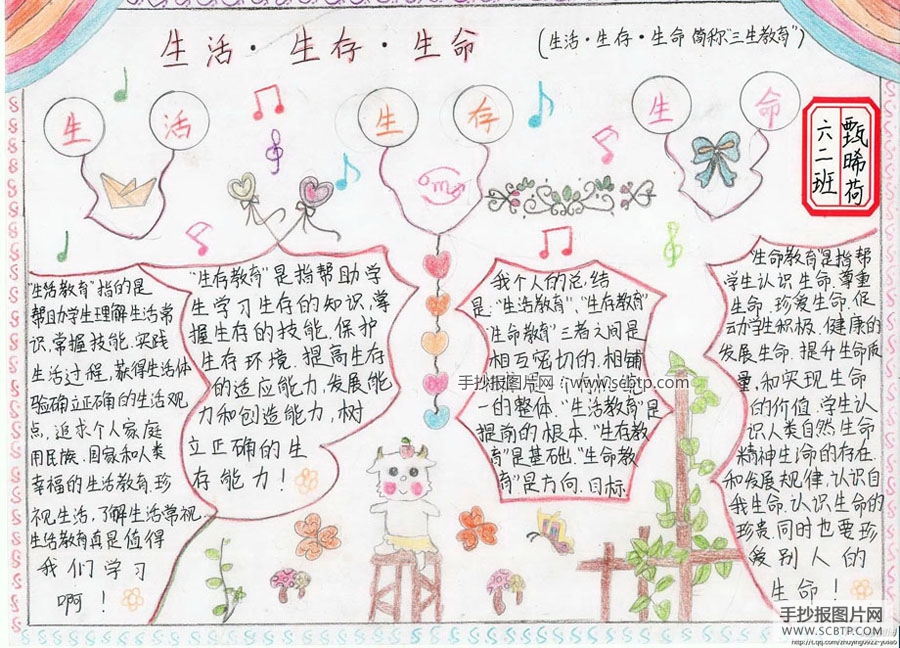 生活·生存·生命
(生活·生存·生命 简称"三生教育")
生 活
生 存
生 命
甄晞荷
六二班
"生活教育"指的是
帮助学生理解生活常
识,掌握技能.实践
生活过程,获得生活体
验确立正确的生活观
点,追求个人家庭
用民族.国家和人类
幸福的生活教育.珍
视生活,了解生活常视.
生活教育真是值得
我们学习
啊!
"生存教育"是指帮助学
生学习生存的知识,掌
握生存的技能.保护
生存环境.提高生存
的适应能力,发展能
力和创造能力,树
立正确的生
存能力!
我个人的总.结
是:"生活教育"、"生存教育"
"生命教育"三者之间是
相互密切的.相铺
一的整体."生活教育"是
提前的根本."生存教
育"是基础."生命教
育"是方向.目标.
"生命教育"是指帮
学生认识生命.尊重
生命.珍爱生命.促
动学生积极.健康的
发展生命.提升生命质
量,和实现生命
的价值.学生认
识人类自然,生命
精神生命的存在
和发展规律.认识自
我生命.认识生命的
珍贵.同时也要珍
爱别人的
生命!
手抄报图片网:www.scbtp.com
手抄报图片网
WWW.SCBTP.COM